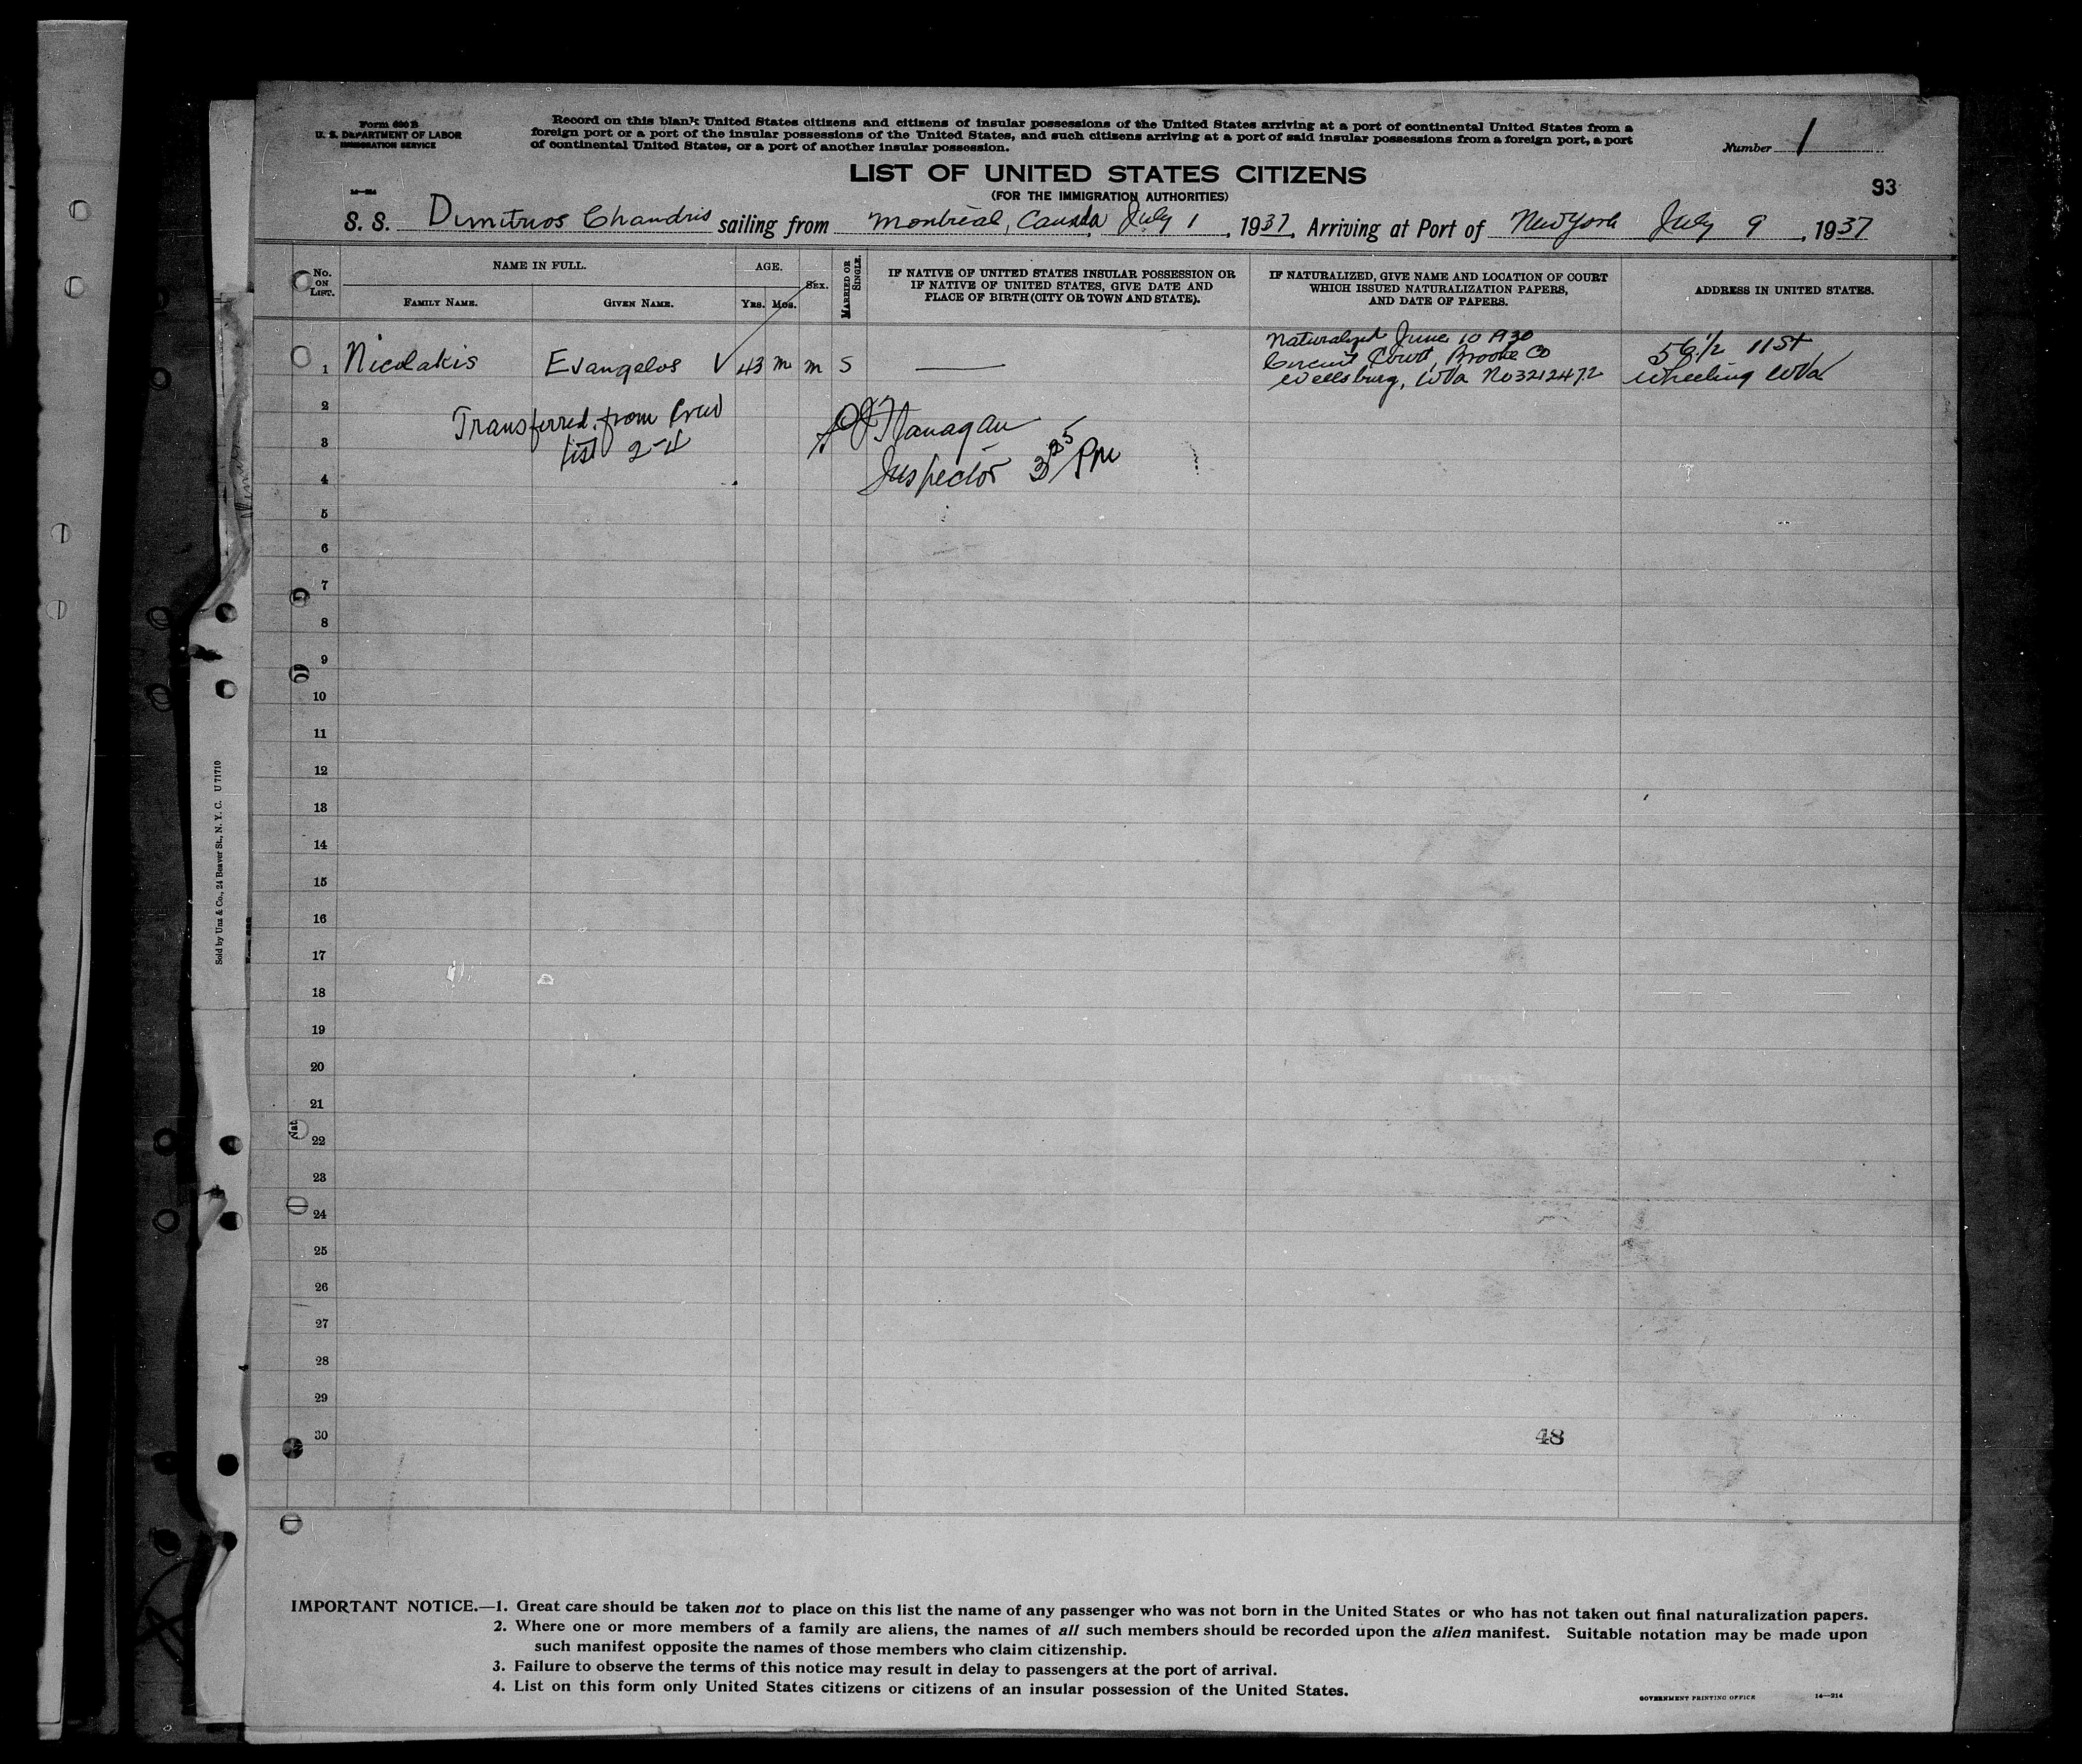 Form 630 B
U. S. DEPARTMENT OF LABOR
IMMIGRATION SERVICE
Record on this blank United States citizens and citizens of insular possessions of the United States arriving at a port of continental United States from a
foreign port or a port of the insular possessions of the United States, and such citizens arriving at a port of said insular possessions from a foreign port, a port
of continental United States, or a port of another insular possession.
Number 1
14—214
LIST OF UNITED STATES CITIZENS
(FOR THE IMMIGRATION AUTHORITIES)
93
S. S. Dimitrios Chandris sailing from Montreal, Canada July 1, 1937, Arriving at Port of New York July 9, 1937
No. ON LIST.
NAME IN FULL.
FAMILY NAME.
GIVEN NAME.
AGE.
YRS. MOS.
SEX.
MARRIED OR SINGLE.
IF NATIVE OF UNITED STATES INSULAR POSSESSION OR
IF NATIVE OF UNITED STATES, GIVE DATE AND
PLACE OF BIRTH (CITY OR TOWN AND STATE).
IF NATURALIZED, GIVE NAME AND LOCATION OF COURT
WHICH ISSUED NATURALIZATION PAPERS,
AND DATE OF PAPERS.
ADDRESS IN UNITED STATES.
1 Nicolakis Evangelos V 43 m m S —
Naturalized June 10 1930
Circuit Court, Brooke Co
Wellsburg, WVa No 3212472
56 1/2 11 St
Wheeling WVa
2
Transferred from Crew
list 2-4
Flanagan
Inspector 3 25 Pm
3
4
5
6
7
8
9
10
11
12
13
14
15
16
17
18
19
20
21
22
23
24
25
26
27
28
29
30
48
Sold by Unz & Co., 24 Beaver St., N. Y. C. U 71710
IMPORTANT NOTICE.—1. Great care should be taken not to place on this list the name of any passenger who was not born in the United States or who has not taken out final naturalization papers.
2. Where one or more members of a family are aliens, the names of all such members should be recorded upon the alien manifest. Suitable notation may be made upon
such manifest opposite the names of those members who claim citizenship.
3. Failure to observe the terms of this notice may result in delay to passengers at the port of arrival.
4. List on this form only United States citizens or citizens of an insular possession of the United States.
GOVERNMENT PRINTING OFFICE
14—214